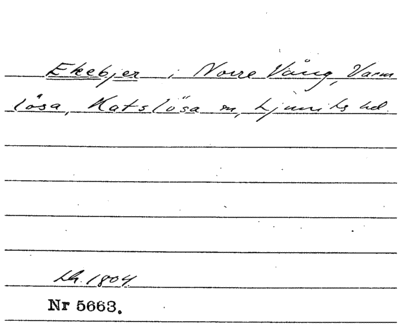 Ekebjer i Norre Vång, Varm
lösa, Katslösa sn, Ljunits hd.
Lh. 1804
Nr 5663.